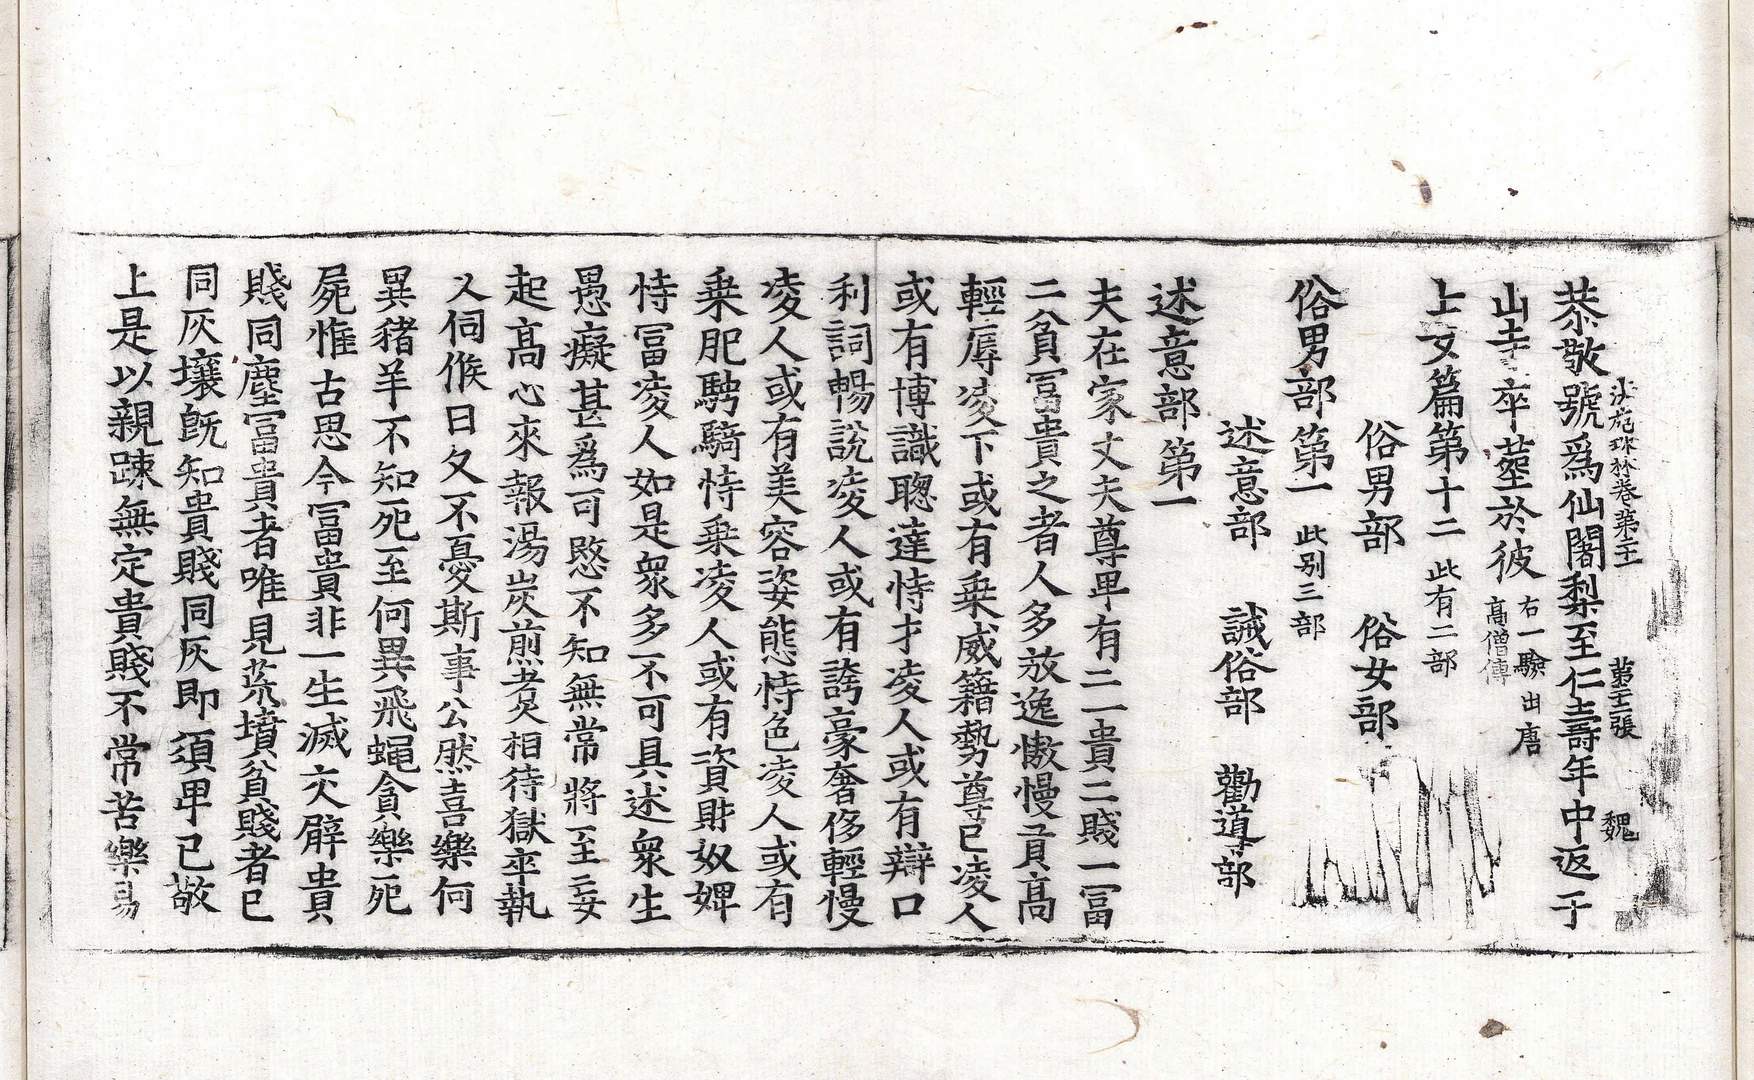 法苑珠林卷第二十一 第二十二張 魏
恭敬號爲仙闍梨至仁壽年中返于
山寺卒葬於彼右一驗出唐高僧傳
士女篇第十二此有二部
俗男部 俗女部
俗男部第一此別三部
述意部 誡俗部 勸導部
述意部第一
夫在家丈夫尊卑有二一貴二賤一冨
二貧冨貴之者人多放逸憿慢貢髙
輕辱凌下或有乗威籍勢尊己凌人
或有博識聰達恃才凌人或有辯口
利詞暢說凌人或有誇豪奢侈輕慢
凌人或有美容姿態恃色凌人或有
乗肥騁騎恃乗凌人或有資財奴婢
恃冨凌人如是衆多不可具述衆生
愚癡甚爲可愍不知無常將至妄
起髙心來報湯炭煎煑相待獄卒執
乂伺候日久不憂斯事公然喜樂何
異豬羊不知死至何異飛蠅貪樂死
屍惟古思今冨貴非一生滅交臂貴
賤同塵冨貴者唯見荒墳貧賤者已
同灰壤旣知貴賤同灰即須卑己敬
上是以親踈無定貴賤不常苦樂易